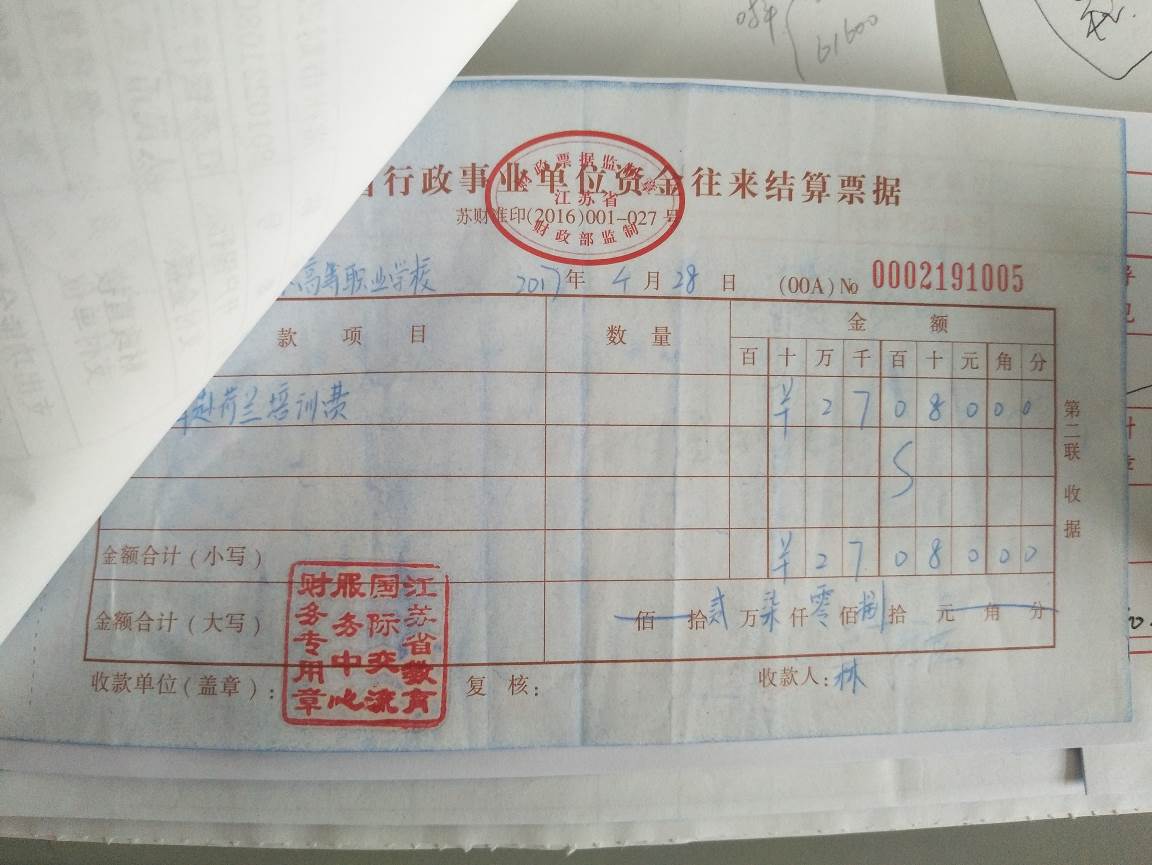 084
61600
省行政事业单位资金往来结算票据
财政票据监制章
江苏省
财政部监制
苏财准印(2016)001-027号
高等职业学校 2017年 4月28日 (00A)№ 0002191005
款项目 数量 金额
百十万千百十元角分
赴荷兰培训费 羊2708000
金额合计(小写) 羊2708000
金额合计(大写) 佰拾贰万柒仟零佰捌拾元角分
第二联 收据
江苏省教育
国际交流
服务中心
财务专用章
收款单位(盖章): 复核: 收款人:林